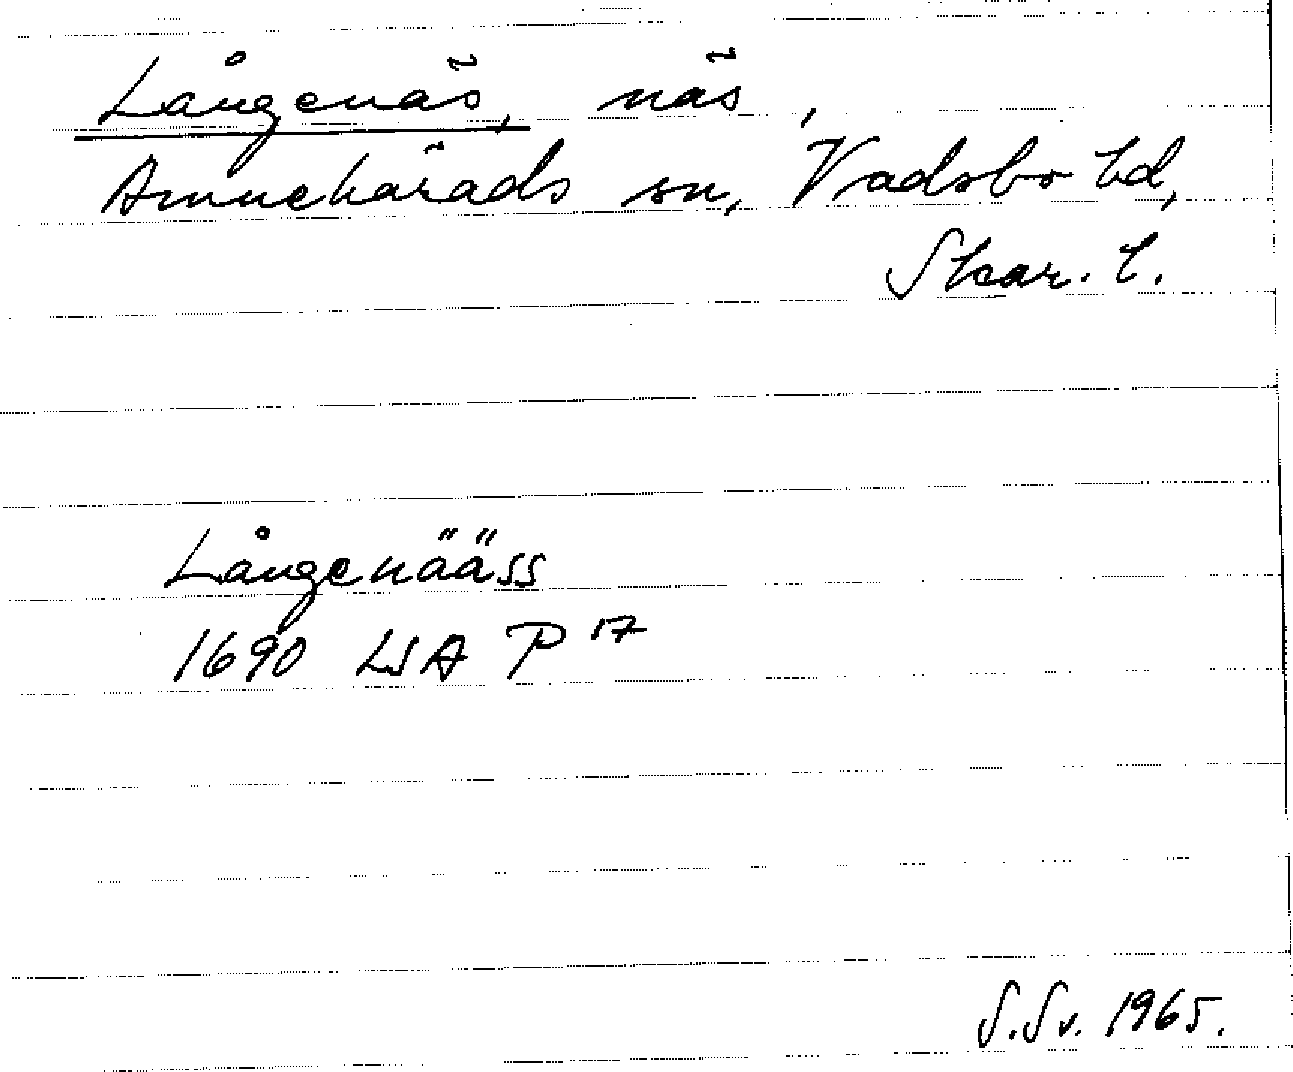 Långenäs, näs,
Amnehärads sn, Vadsbo hd,
Skar. l.
Långenääss
1690 LSA P 17
S. Sv. 1965.